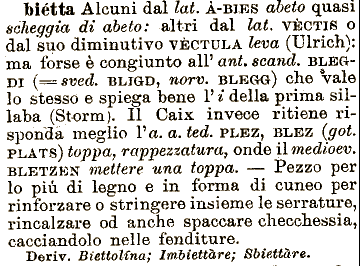 biétta Alcuni dal lat. À-BIES abeto quasi
scheggia di abeto: altri dal lat. VÈCTIS o
dal suo diminutivo VÈCTULA leva (Ulrich):
ma forse è congiunto all'ant. scand. BLEG-
DI (= sved. BLIGD, norv. BLEGG) che vale
lo stesso e spiega bene l'i della prima sil-
laba (Storm). Il Caix invece ritiene ri-
sponda meglio l'a. a. ted. PLEZ, BLEZ (got.
PLATS) toppa, rappezzatura, onde il medioev.
BLETZEN mettere una toppa. — Pezzo per
lo piú di legno e in forma di cuneo per
rinforzare o stringere insieme le serrature,
rincalzare od anche spaccare checchessia,
cacciandolo nelle fenditure.
Deriv. Biettolína; Imbiettàre; Sbiettàre.